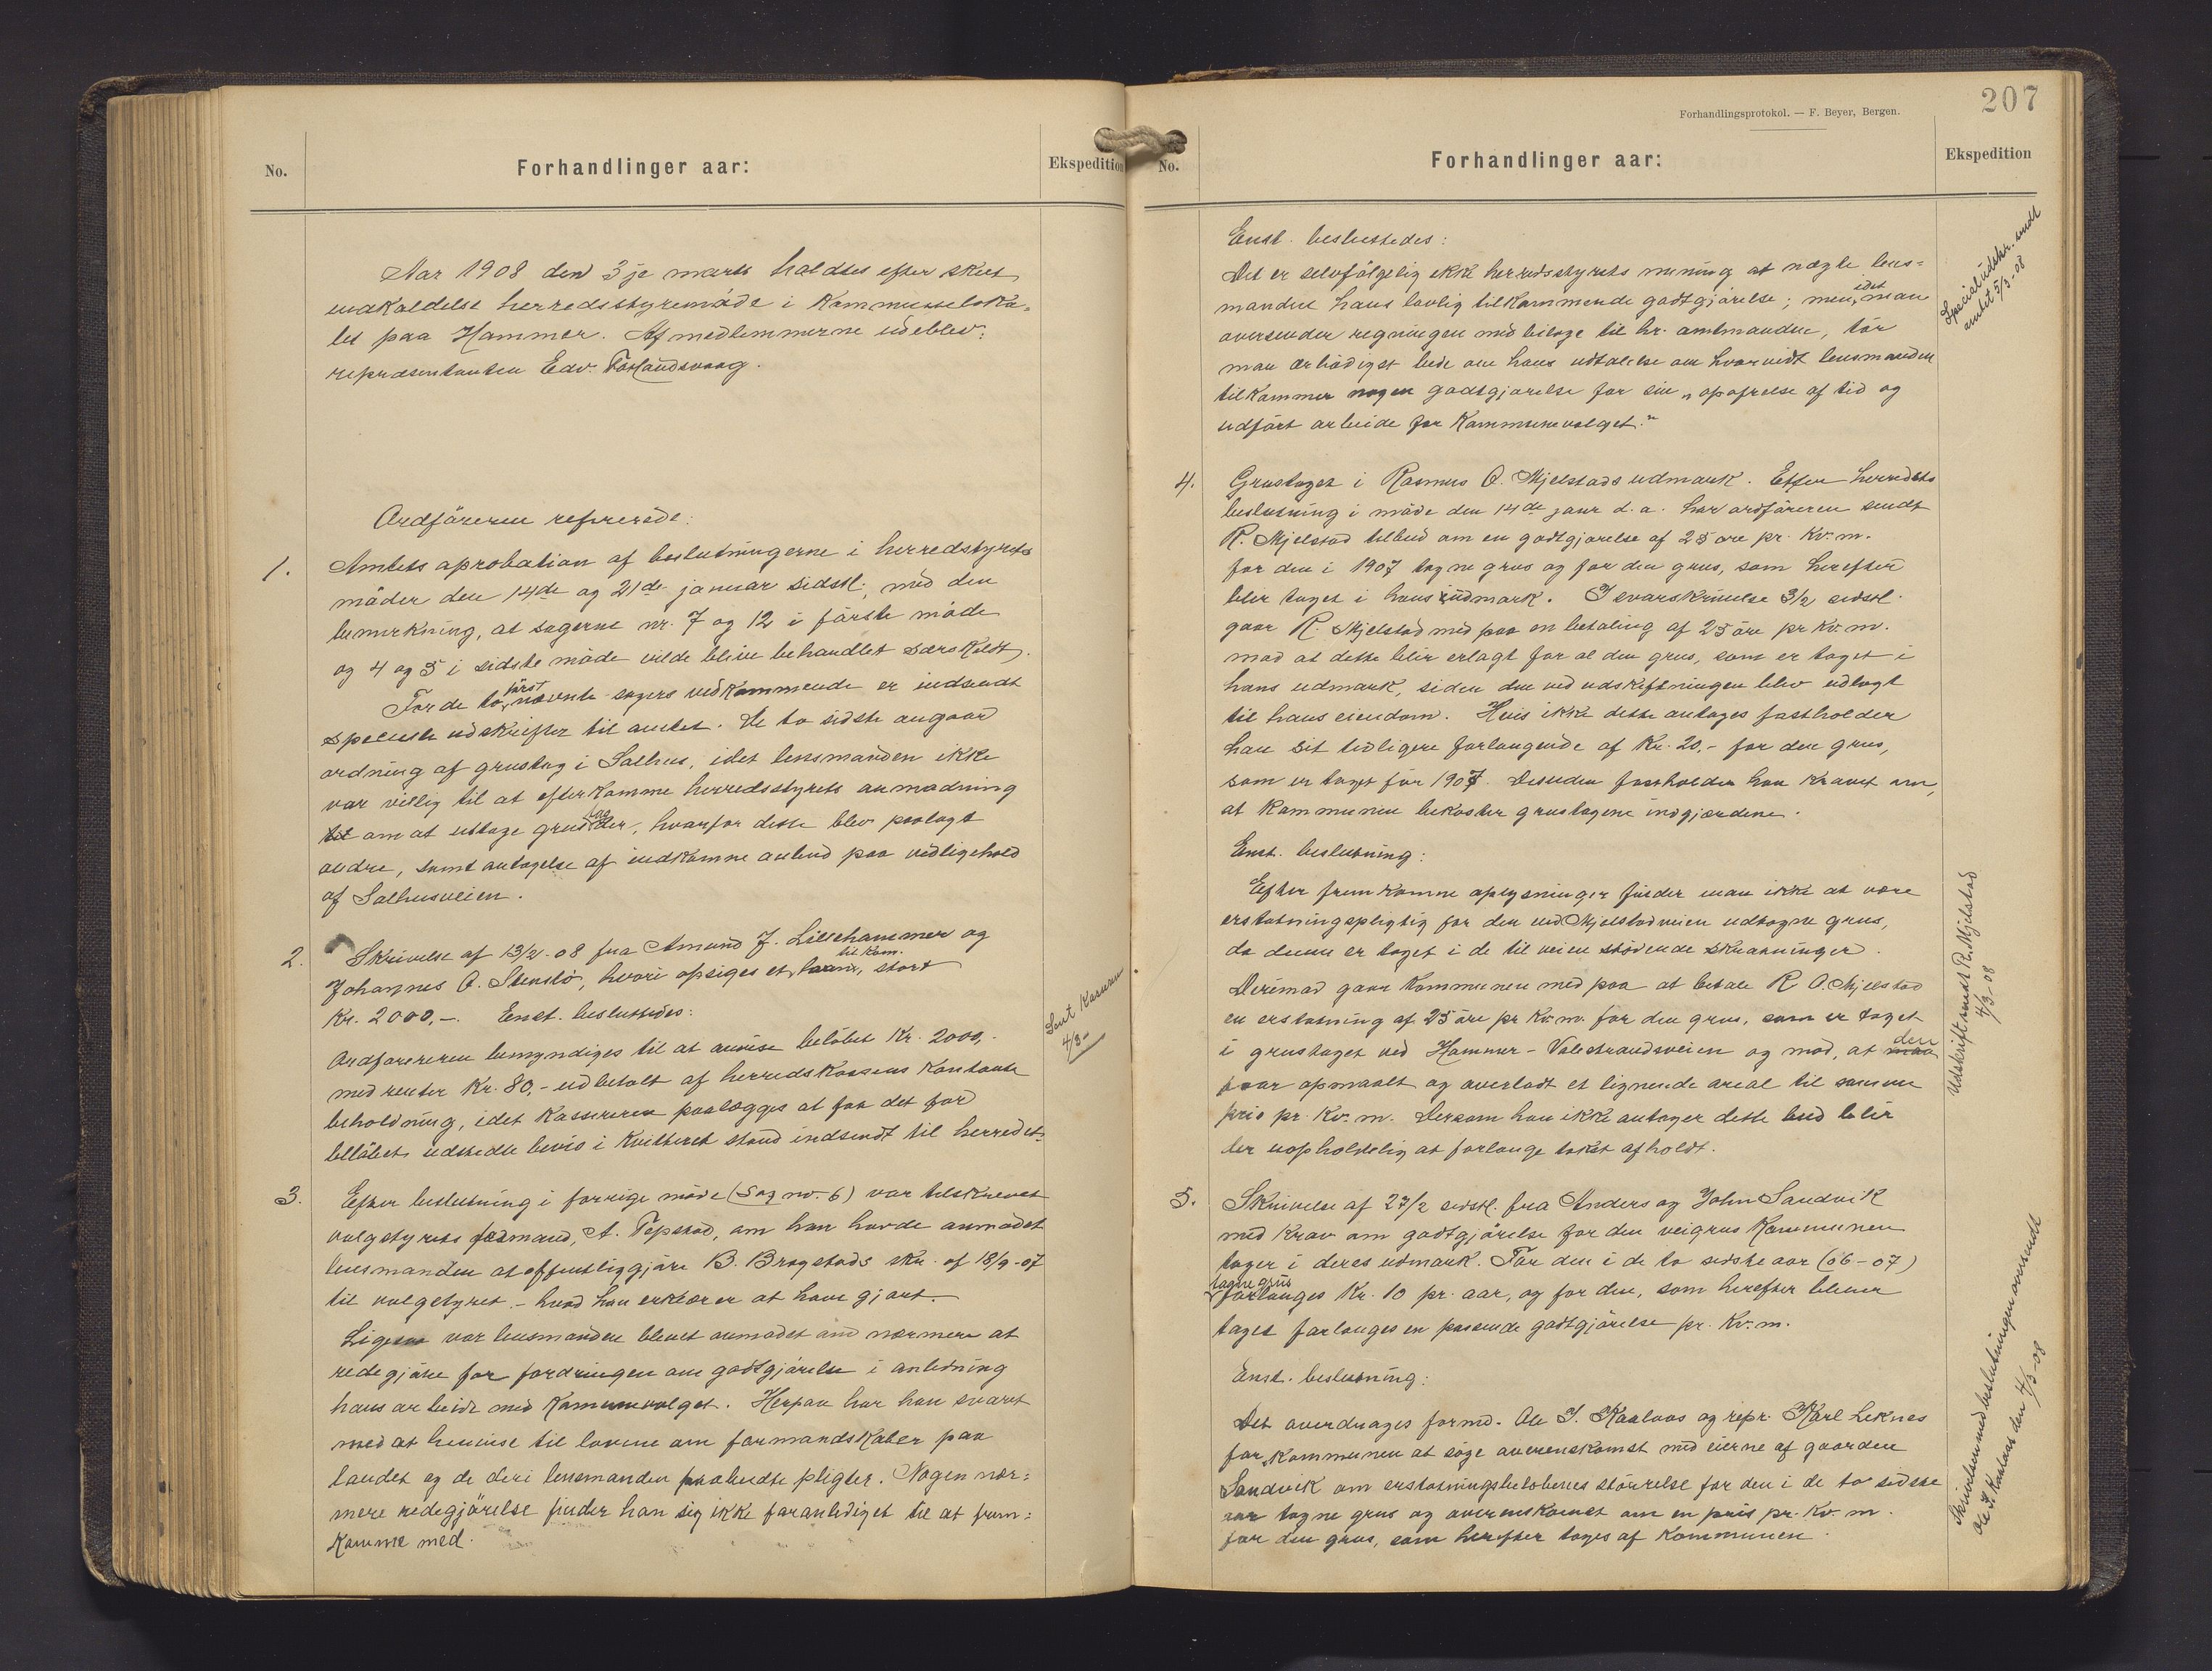 No.
Forhandlinger aar:
Ekspedition
Aar 1908 den 3je marts holdtes efter skeet
indkaldelse herredsstyremøde i Kommuneloka-
let paa Hammer. Af medlemmerne udeblev:
repræsentanten Edv. Forlandsvaag.
Ordføreren refererede:
1. Amtets aprobation af beslutningerne i herredstyrets
møder den 14de og 21de januar sidstl., med den
bemerkning, at sagerne nr. 7 og 12 i første møde
og 4 og 5 i sidste møde vilde blive behandlet særskildt.
For de to først nævnte sagers vedkommende er indsendt
specielle udskrifter til amtet. De to sidste angaar
ordning af grustag i Salhus, idet lensmanden ikke
var villig til at efterkomme herredsstyrets anmodning
om at udtage grus der, hvorfor dette blev paalagt
andre, samt antagelse af indkomne anbud paa vedligehold
af Salhusveien.
2. Skrivelse af 13/2-08 fra Amund J. Lillehammer og
Johannes O. Stenslø, hvori opsiges et til Kom. laan, stort
Kr. 2000,-. Enst. besluttedes:
Ordføreren bemyndiges til at anvise beløbet Kr. 2000,-
med renter Kr. 80,- udbetalt af herredskassens Kontante
beholdning, idet Kassereren paalægges at faa det for
beløbet udstedte bevis i Kvitteret stand indsendt til herredet.
Sent Kasseren
4/3-
3. Efter beslutning i forrige møde (Sag nr. 6) var tilskrevet
valgstyrets formand, A. Tepstad, om han havde anmodet
lensmanden at offentliggjøre B. Brogstads skr. af 18/9-07
til valgstyret. - hvad han erklærer at have gjort.
Ligesaa var lensmanden blevet anmodet om nærmere at
redegjøre for fordringen om godtgjørelse i anledning
hans arbeide med Kommunevalget. Herpaa har han svaret
med at henvise til lovene om formandskaber paa
landet og de deri lensmanden paabudte pligter. Nogen nær-
mere redegjörelse finder han sig ikke foranlediget til at frem-
komme med.
207
Forhandlingsprotokol. — F. Beyer, Bergen.
No.
Forhandlinger aar:
Ekspedition
Enst. besluttedes:
Det er selvfølgelig ikke herredsstyrets mening at nægte lens-
manden hans lovlig tilkommende godtgjørelse; men, idet man
oversender regningen med bilage til hr. amtmanden, tør
man ærbødigst bede om hans udtalelse om hvorvidt lensmanden
tilkommer nogen godtgjørelse for sin „opofrelse af tid og
udført arbeide for Kommunevalget."
Specialudskr. sendt
amtet 5/3-08
4. Grustaget i Rasmus O. Mjelstads udmark. Efter herredets
beslutning i møde den 14de janr d.a. har ordføreren sendt
R. Mjelstad tilbud om en godtgjørelse af 25 øre pr. Kv.m.
for den i 1907 tagne grus og for den grus, som herefter
blir taget i hans udmark. I svarskrivelse 3/2 sidstl.
gaar R. Mjelstad med paa en betaling af 25 øre pr Kv.m.
mod at dette blir erlagt for al den grus, som er taget i
hans udmark, siden den ved udskiftningen blev udlagt
til hans eiendom. Hvis ikke dette antages fastholder
han sit tidligere forlangende af Kr. 20,- for den grus,
som er taget før 1907. Desuden fastholder han kravet om,
at Kommunen bekoster grustagene indgjærdene.
Enst. beslutning:
Efter fremkomne oplysninger finder man ikke at være
erstatningspligtig for den ved Mjelstadveien udtagne grus,
da denne er taget i de til veien stødende skraaninger.
Derimod gaar Kommunen med paa at betale R O. Mjelstad
en erstatning af 25 øre pr Kv.m. for den grus, som er taget
i grustaget ved Hammer-Valestrandsveien og mod, at man den
faar opmaalt og overladt et lignende areal til samme
pris pr. Kv.m. Dersom han ikke antager dette bud blir
der uopholdelig at forlange takst afholdt.
Udskrift sendt R. Mjelstad
4/3-08
5. Skrivelse af 27/2 sidstl. fra Anders og John Sandvik
med Krav om godtgjørelse for den veigrus Kommunen
tager i deres udmark. For den i de to sidste aar (06-07)
tagne grus forlanges Kr. 10 pr. aar, og for den, som herefter bliver
taget forlanges en passende godtgjørelse pr. Kv.m.
Enst. beslutning:
Det overdrages formd. Ole I. Kaalaas og repr. Karl Leknes
for Kommunen at søge overenskomst med eierne af gaarden
Sandvik om erstatningsbeløbenes størrelse for den i de to sidste
aar tagne grus og overenskomst om en pris pr. Kv.m.
for den grus, som herefter tages af Kommunen.
Skrivelsen med beslutningen oversendt
Ole I. Kaalaas den 4/3-08